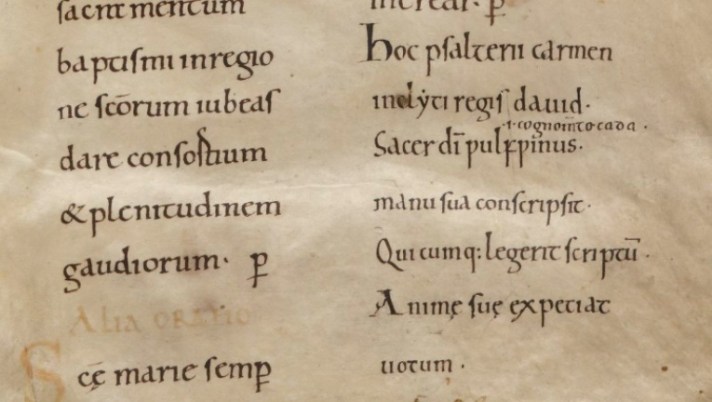 sacrit mentum
baptismi in regio
ne sc̄orum iubeas
dare consortium
& plenitudinem
gaudiorum· p̄
Alia oratio
Scę marie semp̄
increat· p̄
hoc psalterii carmen
inclẏti regis dauid·
·i· cognom̄to cada·
Sacer dī pulspinus·
manu sua conscripsit·
Qui cumq: legerit scriptū·
Animę suę expetiat
uotum·